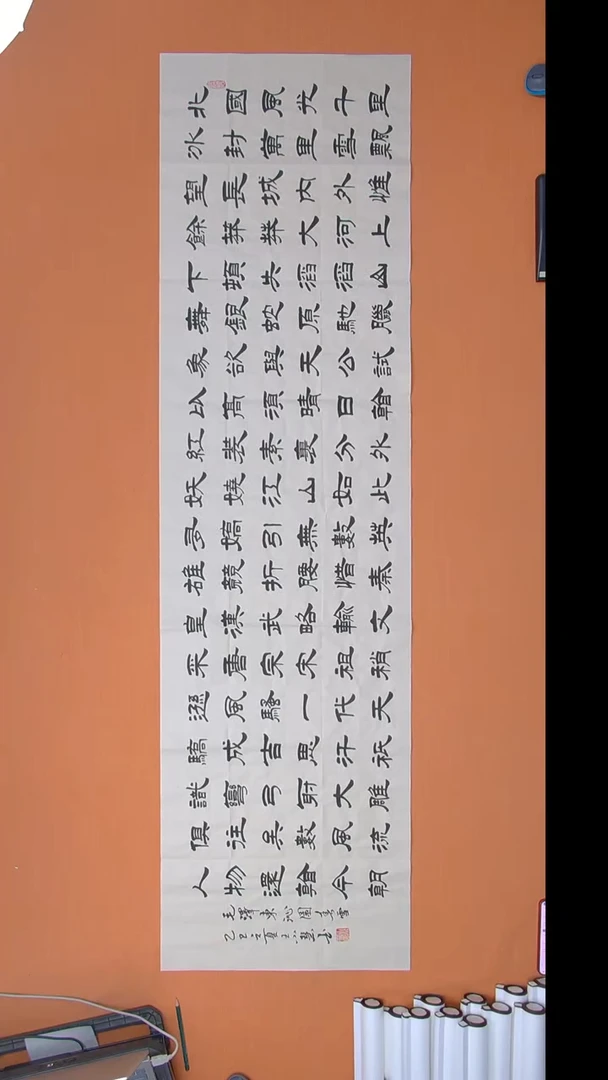 北國風光千里
冰封萬里雪飄
望長城内外惟
餘莽莽大河上
下頓失滔滔山
舞銀蛇原馳臘
象欲與天公試
以高須晴日看
紅裝素裹分外
妖嬈江山如此
多嬌引無數英
雄競折腰惜秦
皇漢武略輸文
采唐宗宋祖稍
遜風騷一代天
驕成吉思汗祇
識彎弓射大雕
俱往矣數風流
人物還看今朝
毛澤東沁園春雪
乙巳之夏王小慧書